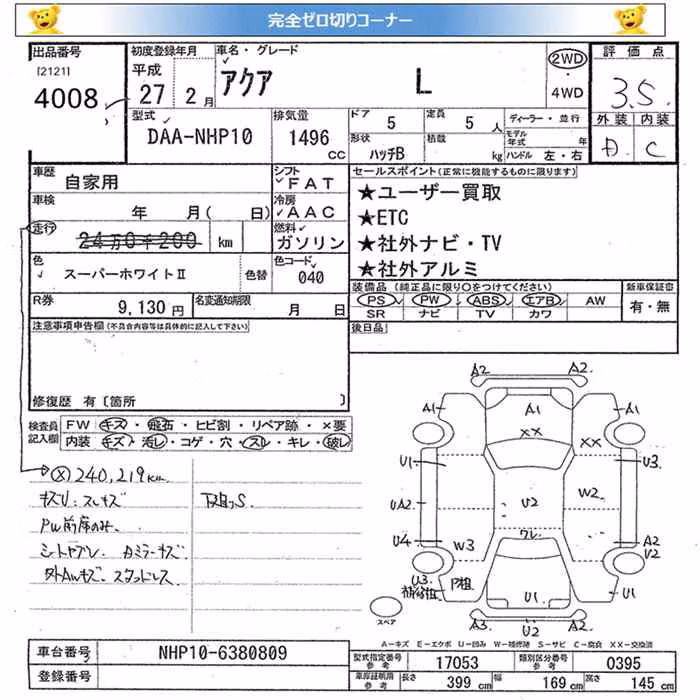 完全ゼロ切りコーナー
出品番号 [2121] 4008
初度登録年月 平成 27 年 2 月
車名・グレード アクア L
2WD ・ 4WD
評価点 3.5
外装 内装
D. C
型式 DAA-NHP10
排気量 1496 CC
ドア 5
定員 5 人
ディーラー・並行
形状 ハッチB
積載 kg
モデル年式 年
ハンドル 左・右
車歴 自家用
シフト FAT
車検 年 月( 日)
冷房 AAC
走行 24万0千200 km
燃料 ガソリン
色 スーパーホワイトⅡ 色替
色コード 040
R券 9,130 円
名変通知期限 月 日
セールスポイント(正常に機能するものに限ります)
★ユーザー買取
★ETC
★社外ナビ・TV
★社外アルミ
装備品(純正品に限り○をつけてください)
新車保証書
PS PW ABS エアB AW
SR ナビ TV カワ
有・無
後日品
注意事項申告欄(不具合内容等は具体的に記入して下さい)
修復歴 有〔箇所 〕
検査員記入欄
FW キズ・飛石・ヒビ割・リペア跡・×要
内装 キズ・汚レ・コゲ・穴・スレ・キレ・破レ
Ⓧ240,219km
キズU・スレキズ
下廻っS
PW前席のみ.
シートヤブレ カミラーキズ
外AWキズ スタッドレス
A2 A2.
A1 A1 A1
XX XX
U1 U3
UA2 U2 W2
U4 ワレ A2
W3 U2
U3. 補給組 P粗. U1 U1
A3 U2 A2.
スペア
A-キズ E-エクボ U-凹み W-補修跡 S-サビ C-腐食 XX-交換済
車台番号 NHP10-6380809
登録番号
型式指定番号 参考 17053
類別区分番号 参考 0395
車庫証明用 参考
長さ 399 cm 幅 169 cm 高さ 145 cm